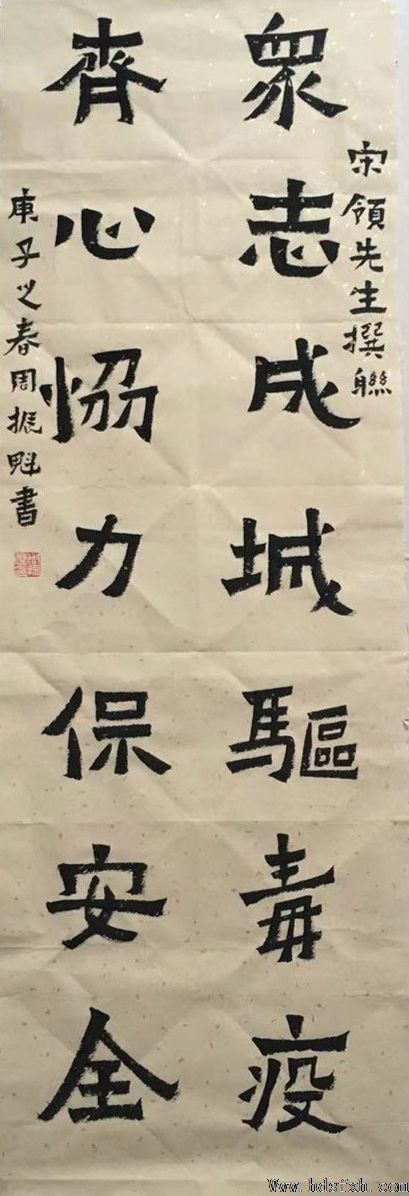 衆志成城驅毒疫
宋領先生撰聯
齊心恊力保安全
庚子之春周振魁書
Www.hdsfxh.com